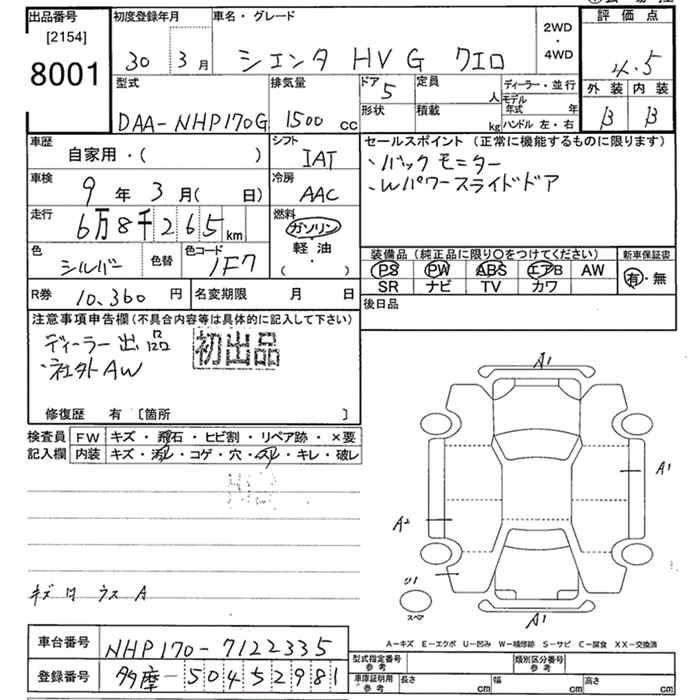 出品番号 初度登録年月 車名・グレード 評価点
[2154] 2WD
8001 30 3月 シエンタ HV G クエロ ・ 4.5
4WD
型式 排気量 ドア 定員 ディーラー・並行 外装 内装
5 人 モデル年式 年
DAA-NHP170G 1500 cc 形状 積載 kg ハンドル 左・右 B B
車歴 シフト セールスポイント(正常に機能するものに限ります)
自家用・( ) IAT ・バックモニター
車検 9年 3月( 日) 冷房 AAC ・Wパワースライドドア
走行 6万8千265km 燃料 ガソリン
軽・油
( ・ )
色 シルバー 色替 色コード 1F7 装備品(純正品に限り○をつけてください) 新車保証書
PS PW ABS エアB AW 有・無
SR ナビ TV カワ
R券 10,360円 名変期限 月 日 後日品
注意事項申告欄(不具合内容等は具体的に記入して下さい)
ディーラー出品 初出品
・社外AW
修復歴 有 〔箇所 〕
検査員 FW キズ・飛石・ヒビ割・リペア跡・×要
記入欄 内装 キズ・汚レ・コゲ・穴・スレ・キレ・破レ
A1
A1
A2
U1
スペア
A1
A-キズ E-エクボ U-凹み W-補修跡 S-サビ C-腐食 XX-交換済
車台番号 NHP170-7122335
登録番号 多摩-50452981
型式指定番号 参考 類別区分番号 参考
車庫証明用 参考 長さ cm 幅 cm 高さ cm